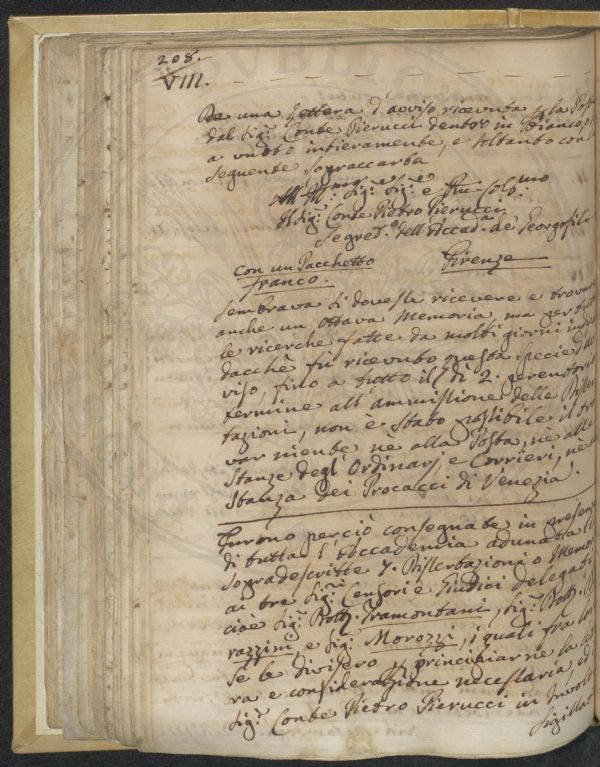 208.
VIII.
Da una Lettera d'avviso ricevuta p. la Posta
dal Sig.r Conte Pierucci dentro in Bianco, o
a vuoto intieramente, e soltanto con
seguente sopraccarta
All' Ill.mo Sig.r Sig.r e P.ne Col.mo
Il Sig.r Conte Pietro Pierucci
Segret.o dell'Accad.a de' Georgofili
con un Pacchetto Firenze
franco.
sembrava si dovesse ricevere e trovare
anche un ottava Memoria, ma per tutte
le ricerche fatte da molti giorni
dacchè fu ricevuto questa specie d'av
viso, fino a tutto il dì 2. perentorio
termine all'ammissione delle Disser
tazioni, non è stato possibile il tro
var niente nè alla Posta, nè alle
Stanze degl'Ordinarj, e Corrieri, nè
Stanza dei Procacci di Venezia.
Furono perciò consegnate in presenz
di tutta l'Accademia adunata l
sopradescritte 7. Dissertazioni o Memor
ai tre Sig.ri Censori e Giudici delegati
cioè Sig.r Dott. Tramontani, Sig.r Dott.
razzini, e Sig.r Morozzi, i quali fra lor
se le divisero p. principiarne la lettu
ra e considerazione necessaria, ed
Sig.r Conte Pietro Pierucci in Involt
sigillat